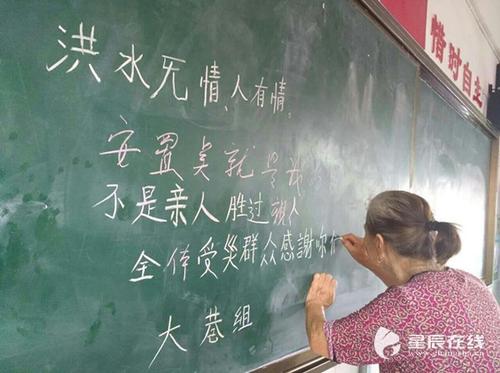 洪水无情、人有情。
安置点就是我
不是亲人胜过亲人
全体受灾群众感謝你们
大巷组
惜时自主
星辰在线